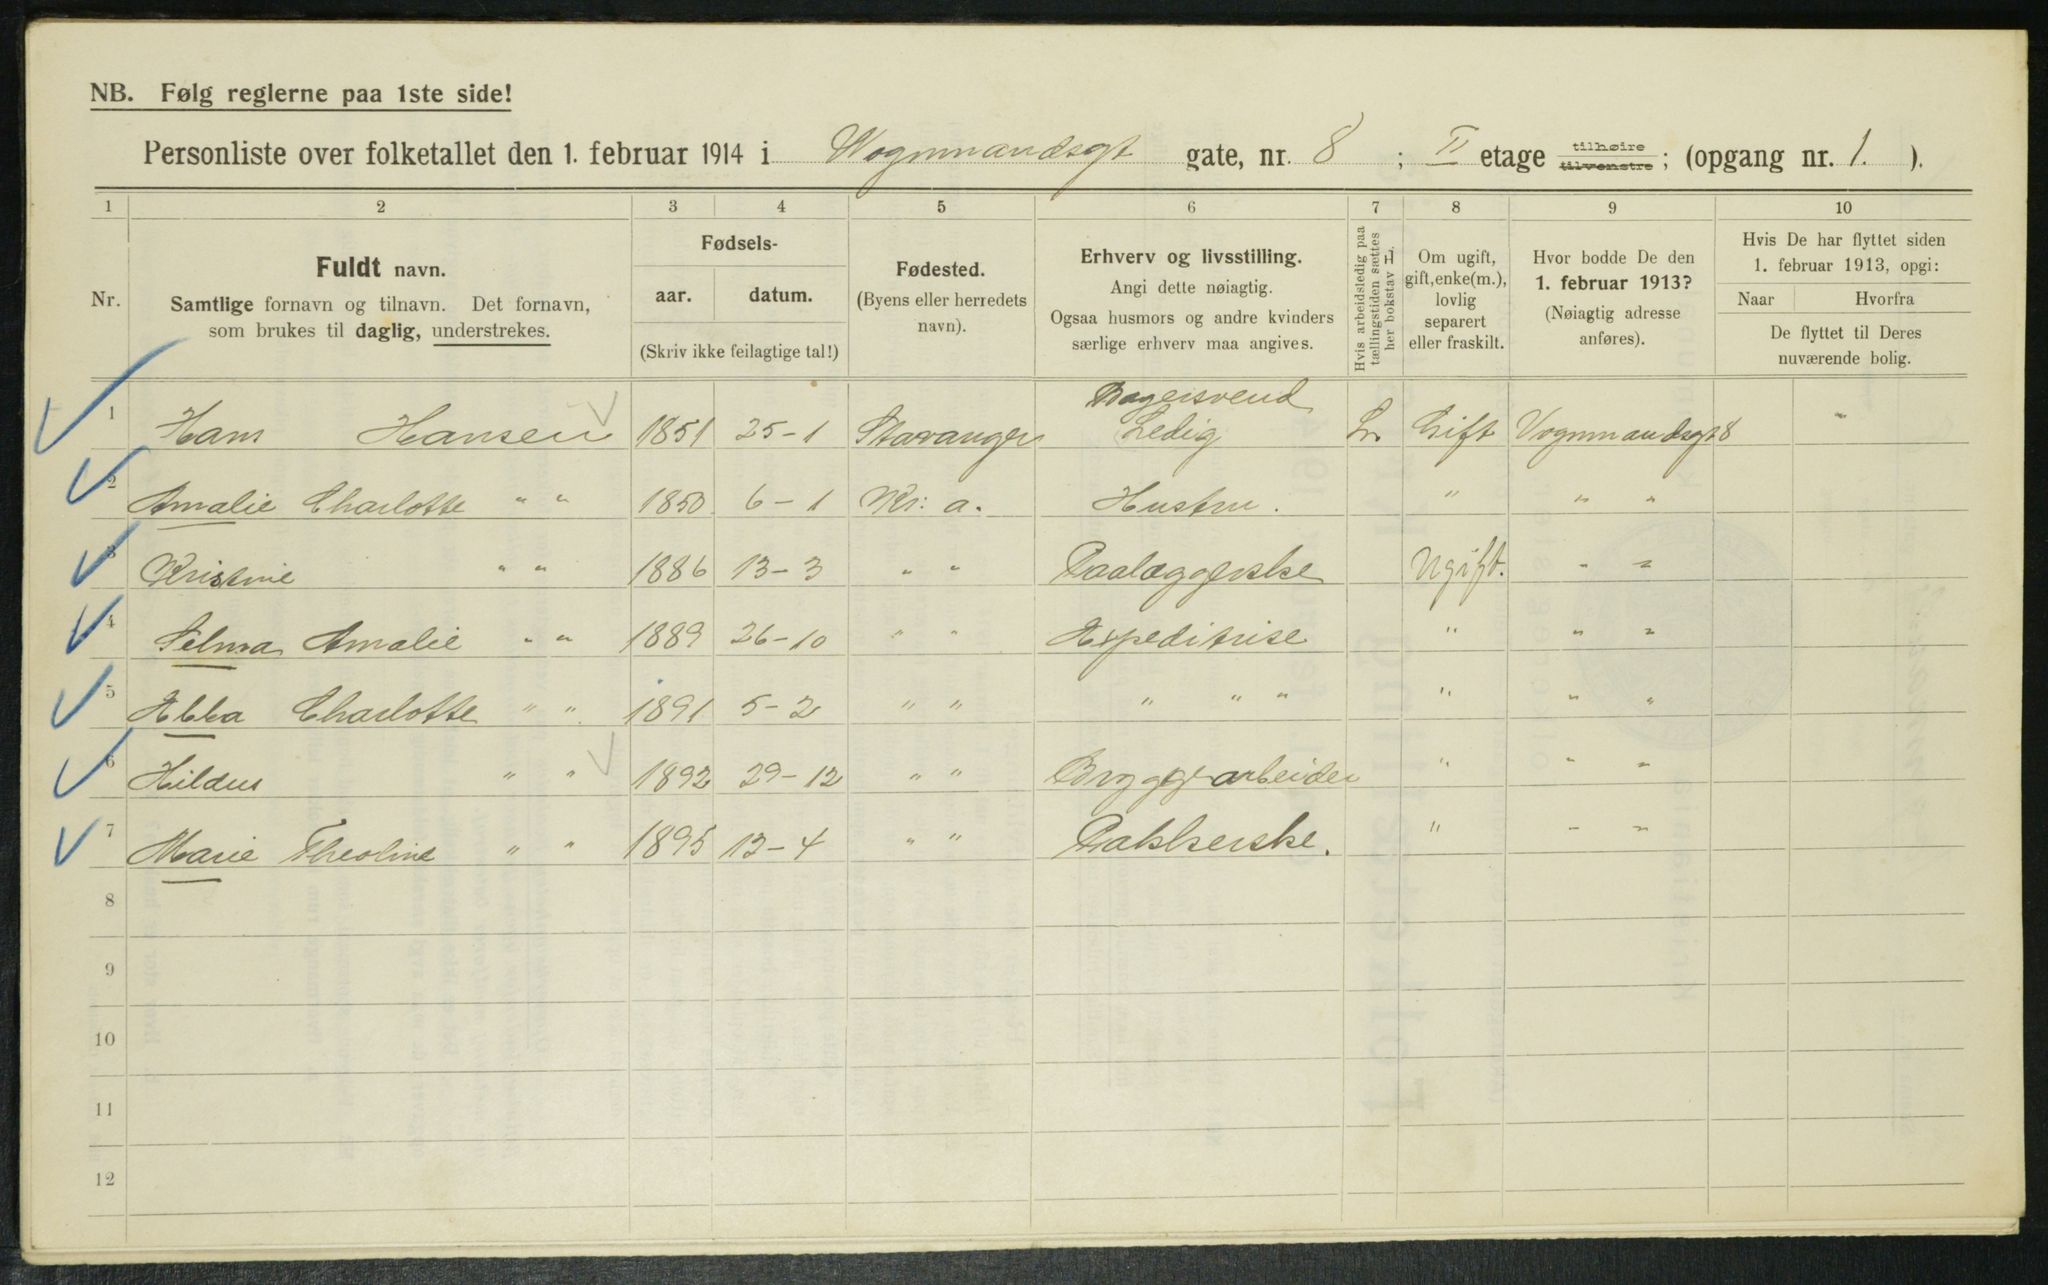 NB. Følg reglerne paa 1ste side!
Personliste over folketallet den 1. februar 1914 i Vognmandsgt gate, nr. 8 ; II etage tilhøire tilvenstre ; (opgang nr. 1. ).
1 2 3 4 5 6 7 8 9 10
Nr.
Fuldt navn.
Samtlige fornavn og tilnavn. Det fornavn,
som brukes til daglig, understrekes.
Fødsels-
aar. datum.
(Skriv ikke feilagtige tal!)
Fødested.
(Byens eller herredets
navn).
Erhverv og livsstilling.
Angi dette nøiagtig.
Ogsaa husmors og andre kvinders
særlige erhverv maa angives.
Hvis arbeidsledig paa
tællingstiden sættes
her bokstav L.
Om ugift,
gift, enke(m.),
lovlig
separert
eller fraskilt.
Hvor bodde De den
1. februar 1913?
(Nøiagtig adresse
anføres).
Hvis De har flyttet siden
1. februar 1913, opgi:
Naar Hvorfra
De flyttet til Deres
nuværende bolig.
1 Hans Hansen 1851 25-1 Stavanger Bagersvend Ledig L. Gift Vognmandsgt 8 "
2 Amalie Charlotte " " 1850 6-1 Kr: a. Hustru. " " "
3 Kristine " " 1886 13-3 " " Paalæggerske Ugift. " "
4 Selma Amalie " " 1889 26-10 " " Expeditrise " " "
5 Ebba Charlotte " " 1891 5-2 " " " " " " " "
6 Hildus " " 1892 29-12 " " Bryggearbeider " " "
7 Marie Theoline " " 1895 13-4 " " Pakkerske. " " "
8
9
10
11
12